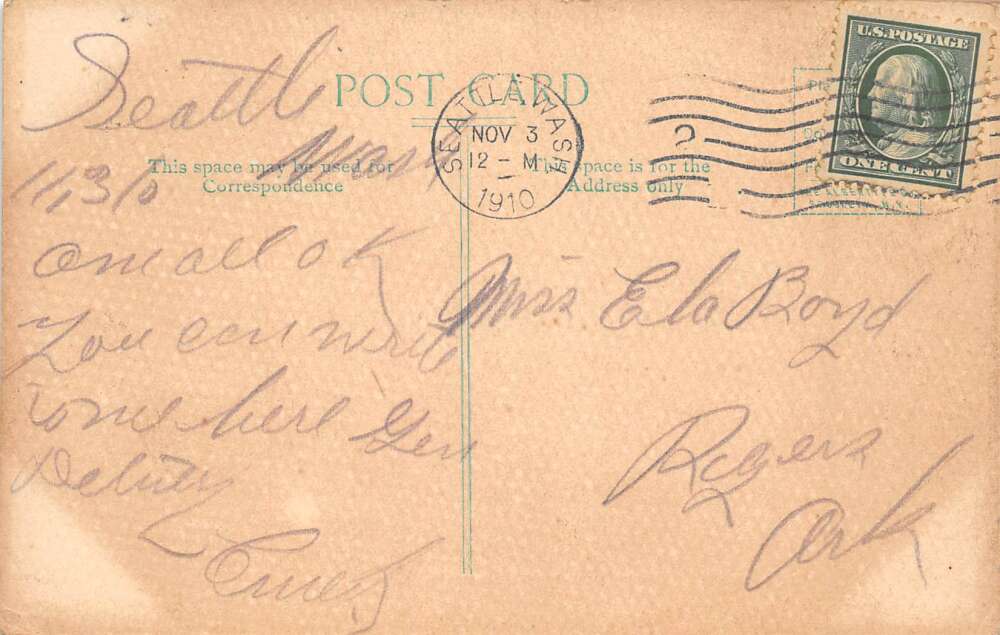 POST CARD
This space may be used for
Correspondence
This space is for the
Address only
SEATTLE, WASH.
NOV 3
12 - M
1910
2
U.S. POSTAGE
ONE CENT
Seattle
Wash
11/3/10
am all o k
You can write
to me here Gen
Delivery
Miss Ela Boyd
Rogers
Ark